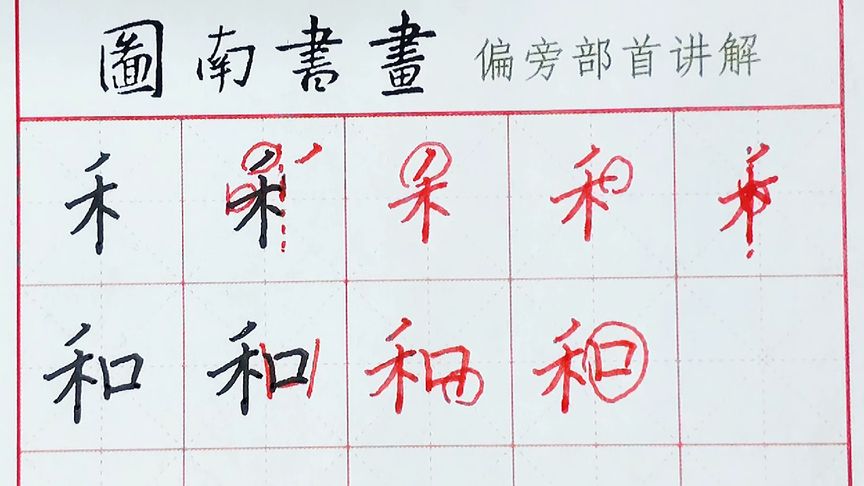 圖南書畫 偏旁部首讲解
禾 禾 禾 禾 禾
和 和 和 和